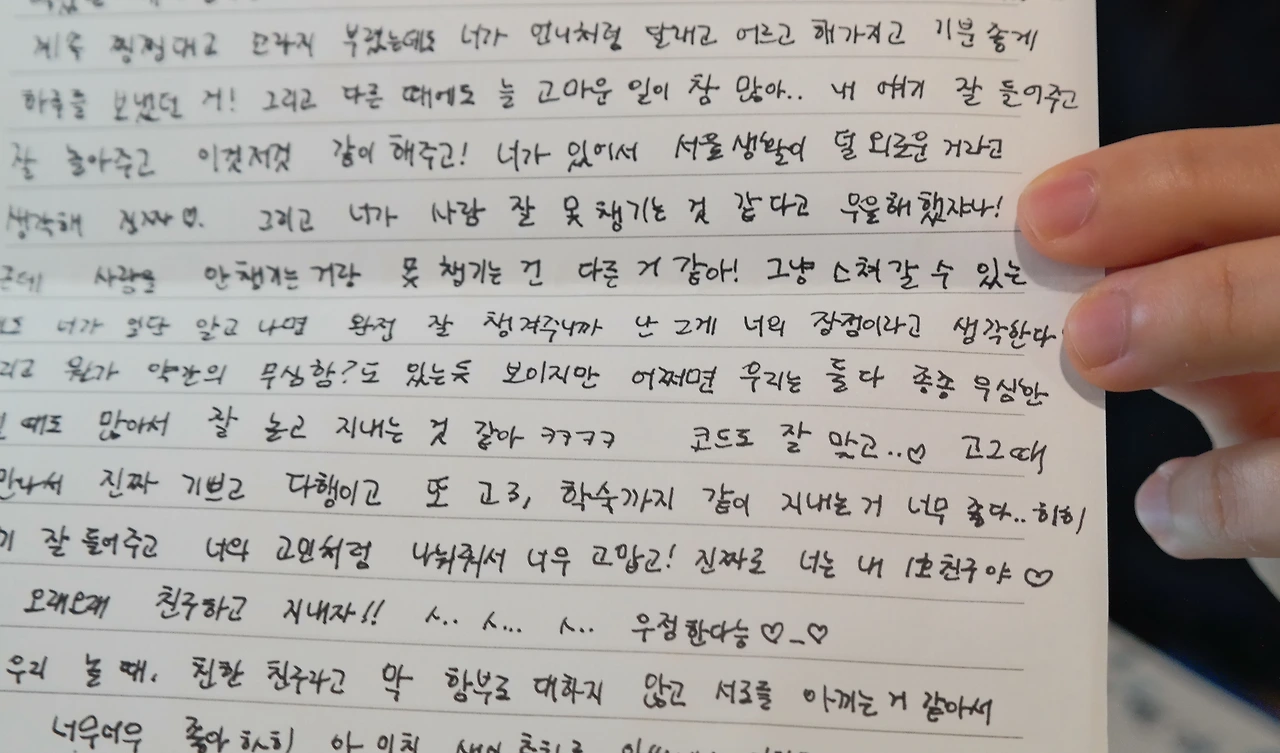 계속 찡찡대고 모라지 부렸는데도 너가 언니처럼 달래고 어르고 해가지고 기분 좋게
하루를 보냈던 거! 그리고 다른 때에도 늘 고마운 일이 참 많아.. 내 얘기 잘 들어주고
잘 놀아주고 이것저것 같이 해주고! 너가 있어서 서울생활이 덜 외로운 거라고
생각해 진짜♡. 그리고 너가 사람 잘 못 챙기는 것 같다고 우울해했쟈나!
근데 사람을 안챙기는거랑 못 챙기는 건 다른 거 같아! 그냥 스쳐갈 수 있는
너가 일단 알고 나면 완전 잘 챙겨주니까 난 그게 너의 장점이라고 생각한다
뭔가 약간의 무심함?도 있는듯 보이지만 어쩌면 우리는 둘 다 종종 무심한
때도 많아서 잘 놀고 지내는 것 같아 ㅋㅋㅋㅋ 코드도 잘 맞고..♡ 고그때
만나서 진짜 기쁘고 다행이고 또 고3, 학숙까지 같이 지내는거 너무 좋다.. 히히
잘 들어주고 너의 고민처럼 나눠줘서 너무 고맙고! 진짜로 너는 내 1호친구야 ♡
오래오래 친구하고 지내자!! ㅅ.. ㅅ... ㅅ.. 우정한다능 ♡_♡
우리 놀 때, 친한 친구라고 막 함부로 대하지 않고 서로를 아끼는거 같아서
너무너무 좋아 아